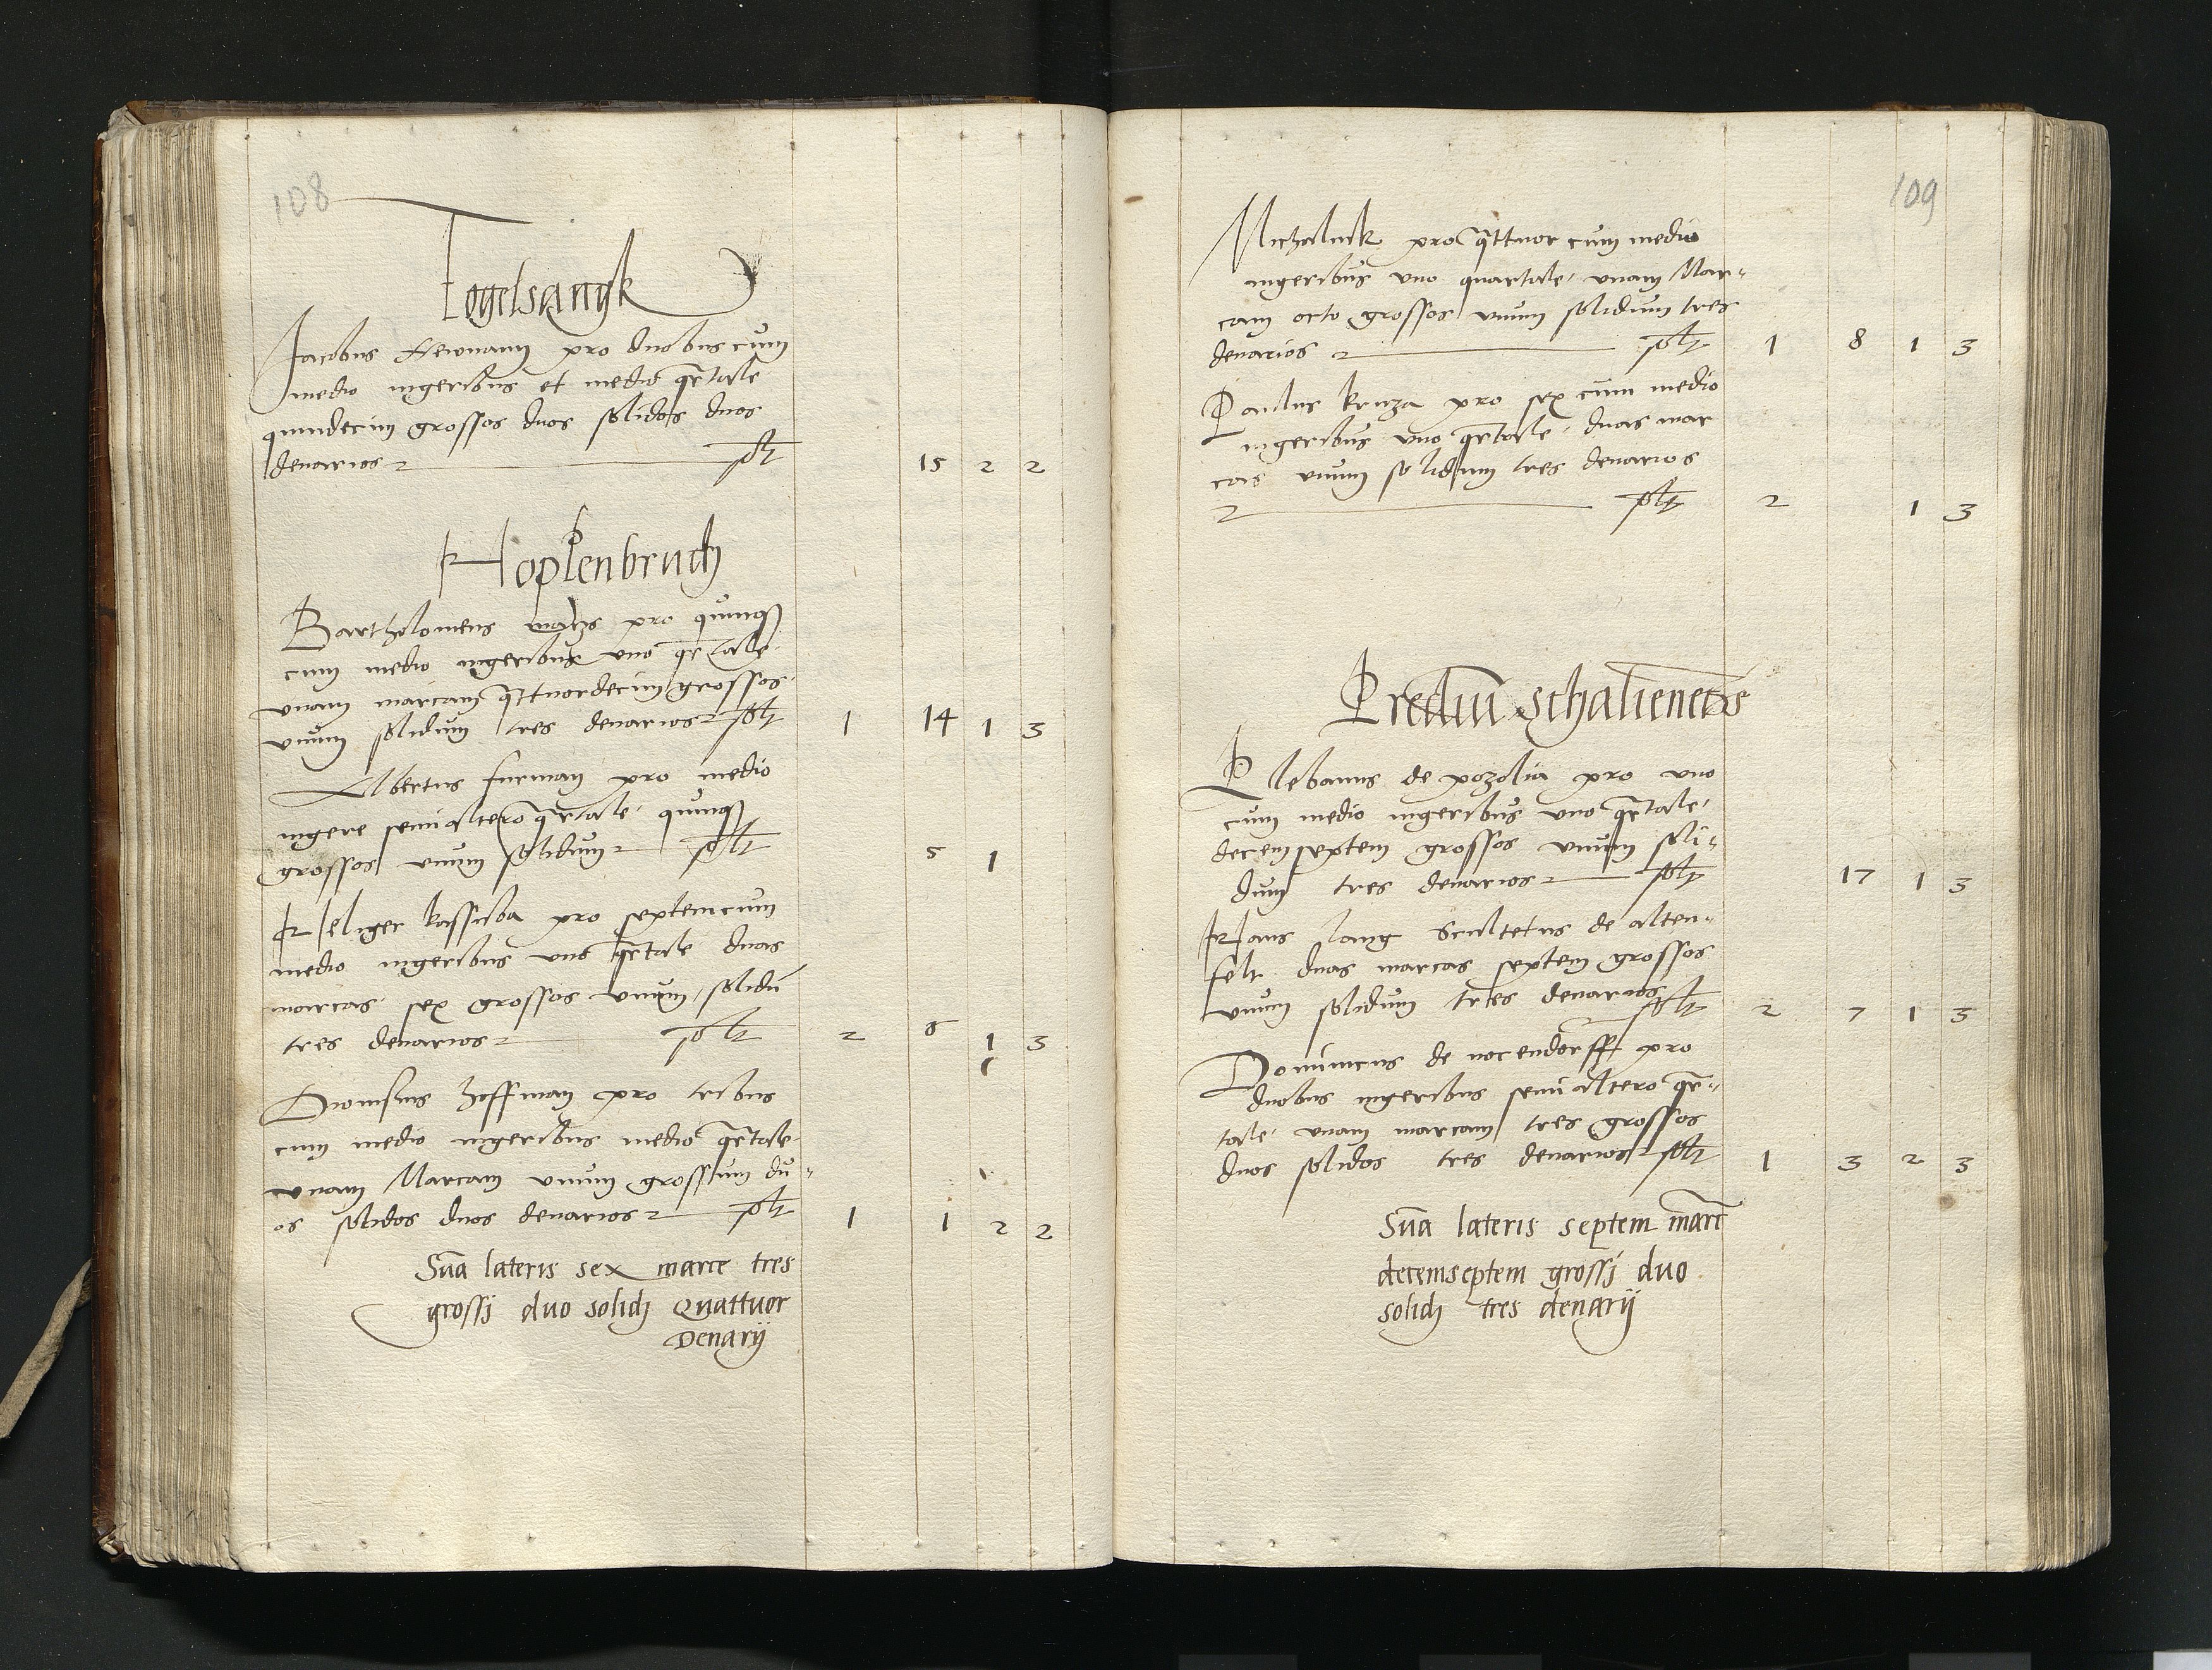 108
Fogelsangk
Jacobus Newmann pro duobus cum
medio iugeribus et medio qrtale
quindecim grossos duos solidos duos
denarios slt 15 2 2
Hopfenbruch
Bartholomeus pro quinq
cum medio iugeribus uno qrtale
unam marcam qttuordecim grossos
unum solidum tres denarios slt 1 14 1 3
Albertus furman pro medio
iugere semialtero qrtale quinq
grossos unum solidum slt 5 1
Heliger kassuba pro septem cum
medio iugeribus uno qrtale duas
marcas sex grossos unum solidu
tres denarios slt 2 6 1 3
Dionisius hoffman pro tribus
cum medio iugeribus medio qrtale
unam Marcam unum grossum du-
os solidos duos denarios slt 1 1 2 2
Sua lateris sex marce tres
grossi duo solidi Quattuor
Denarij
109
Michaluk pro qttuor cum medio
iugeribus uno quartale unam Mar-
cam octo grossos unum solidum tres
denarios slt 1 8 1 3
Paulus kruza pro sex cum medio
iugeribus uno qrtale duas mar
cas unum solidum tres denarios
slt 2 1 3
Prediu Schalienets
Plebanus de pozolia pro uno
cum medio iugeribus uno qrtale
decemseptem grossos unum soli-
dum tres denarios slt 17 1 3
Hans lang Scultetus de alten-
felt duas marcas septem grossos
unum solidum tres denarios slt 2 7 1 3
Dominicus de nocendorff pro
duobus iugeribus semialtero qr-
tale unam marcam tres grossos
duos solidos tres denarios slt 1 3 2 3
Sua lateris septem marce
decemseptem grossi duo
solidi tres denarij